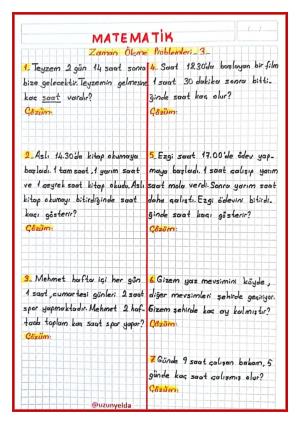 MATEMATİK
Zaman Ölçme Problemleri_3_
1. Teyzem 2 gün 14 saat sonra
bize gelecektir. Teyzemin gelmesine
kaç saat vardır?
Çözüm:
2. Aslı 14.30'da kitap okumaya
başladı. 1 tam saat, 1 yarım saat
ve 1 çeyrek saat kitap okudu. Aslı
kitap okumayı bitirdiğinde saat
kaçı gösterir?
Çözüm:
3. Mehmet hafta içi her gün
1 saat, cumartesi günleri 2 saat
spor yapmaktadır. Mehmet 2 haf-
tada toplam kaç saat spor yapar?
Çözüm:
4. Saat 12.30'da başlayan bir film
1 saat 30 dakika sonra bitti-
ğinde saat kaç olur?
Çözüm:
5. Ezgi saat 17.00'de ödev yap-
maya başladı. 1 saat çalışıp yarım
saat mola verdi. Sonra yarım saat
daha çalıştı. Ezgi ödevini bitirdi-
ğinde saat kaçı gösterir?
Çözüm:
6. Gizem yaz mevsimini köyde,
diğer mevsimleri şehirde geçiriyor.
Gizem şehirde kaç ay kalmıştır?
Çözüm:
7. Günde 9 saat çalışan babam, 5
günde kaç saat çalışmış olur?
Çözüm:
@uzunyelda